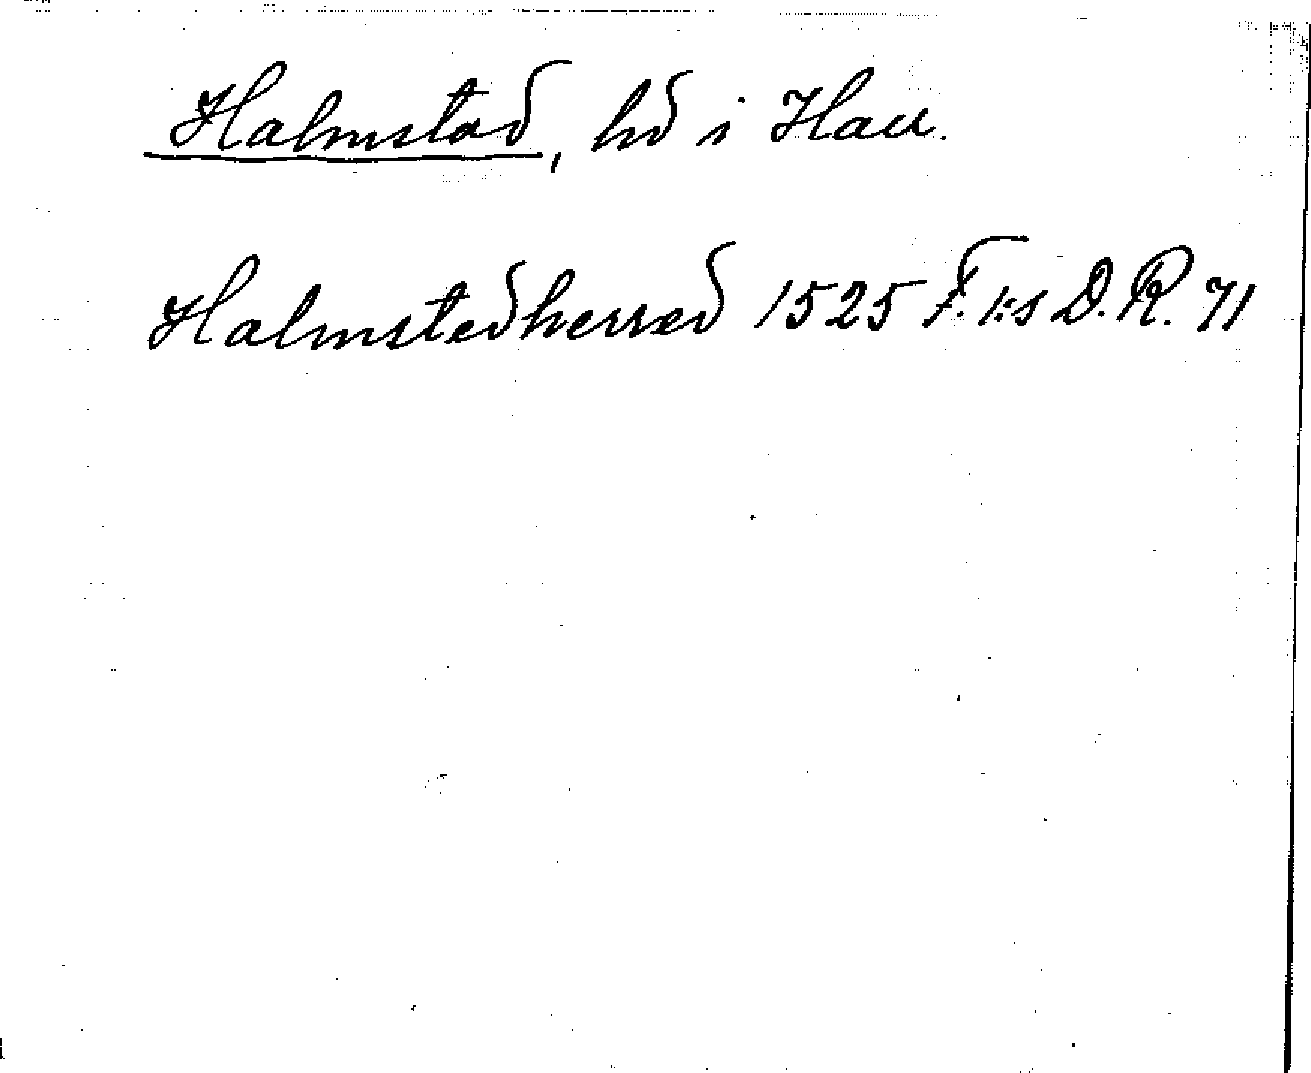 Halmstad, hd i Hall.
Halmstedherred 1525 F. I:s D.R. 71